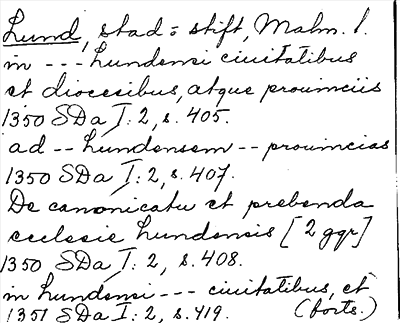 Lund, stad = stift, Malm. l.
in --- Lundensi ciuitatibus
et diocesibus, atque prouinciis
1350 SDa I: 2, s. 405.
ad -- Lundensem -- prouincias
1350 SDa I: 2, s. 407.
De canonicatu et prebenda
ecclesie Lundensis [2 ggr]
1350 SDa I: 2, s. 408.
in Lundensi --- ciuitatibus, et
1351 SDa I: 2, s. 419. (forts.)